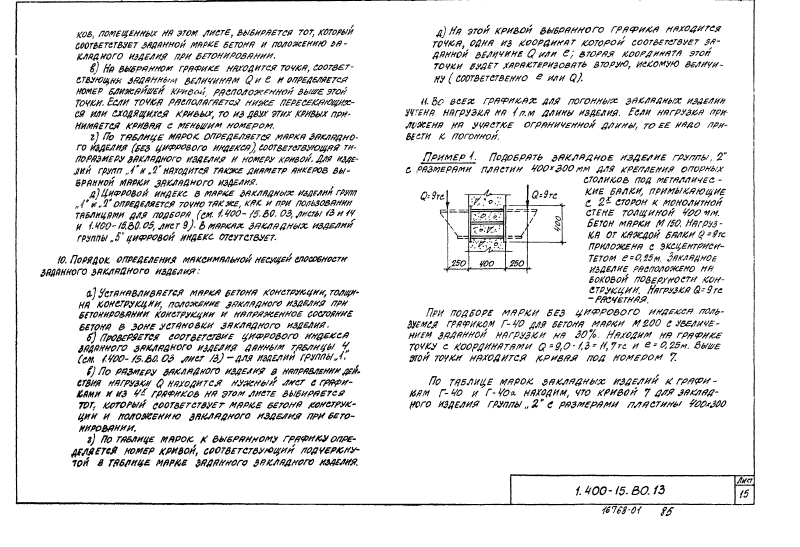 ков, помещенных на этом листе, выбирается тот, который
соответствует заданной марке бетона и положению за-
кладного изделия при бетонировании.
в) На выбранном графике находится точка, соответ-
ствующая заданным величинам Q и e и определяется
номер ближайшей кривой, расположенной выше этой
точки. Если точка располагается ниже пересекающих-
ся или сходящихся кривых, то из двух этих кривых при-
нимается кривая с меньшим номером.
г) По таблице марок определяется марка закладно-
го изделия (без цифрового индекса), соответствующая ти-
поразмеру закладного изделия и номеру кривой. Для изде-
лий групп „1" и „2" находится также диаметр анкеров вы-
бранной марки закладного изделия.
д) Цифровой индекс в марке закладных изделий групп
„1" и „2" определяется точно так же, как и при пользовании
таблицами для подбора (см. 1.400-15.В0.03, листы 13 и 14
и 1.400-15.В0.05, лист 9). В марках закладных изделий
группы „5" цифровой индекс отсутствует.
10. Порядок определения максимальной несущей способности
заданного закладного изделия:
а) Устанавливается марка бетона конструкции, толщи-
на конструкции, положение закладного изделия при
бетонировании конструкции и напряженное состояние
бетона в зоне установки закладного изделия.
б) Проверяется соответствие цифрового индекса
заданного закладного изделия данным таблицы 4
(см. 1.400-15.В0.03 лист 13) – для изделий группы „1".
в) По размеру закладного изделия в направлении дей-
ствия нагрузки Q находится нужный лист с графи-
ками и из 4х графиков на этом листе выбирается
тот, который соответствует марке бетона конструк-
ции и положению закладного изделия при бето-
нировании.
г) По таблице марок к выбранному графику опре-
деляется номер кривой, соответствующий подчеркну-
той в таблице марке заданного закладного изделия.
д) На этой кривой выбранного графика находится
точка, одна из координат которой соответствует за-
данной величине Q или e; вторая координата этой
точки будет характеризовать вторую, искомую величи-
ну (соответственно e или Q).
11. Во всех графиках для погонных закладных изделий
учтена нагрузка на 1 п.м длины изделия. Если нагрузка при-
ложена на участке ограниченной длины, то ее надо при-
вести к погонной.
Пример 1. Подобрать закладное изделие группы „2"
с размерами пластин 400×300 мм для крепления опорных
столиков под металличес-
кие балки, примыкающие
с 2х сторон к монолитной
стене толщиной 400 мм.
Бетон марки М 150. Нагруз-
ка от каждой балки Q=9тс
приложена с эксцентриси-
тетом e=0,25м. Закладное
изделие расположено на
боковой поверхности кон-
струкции. Нагрузка Q=9тс
– расчетная.
Q=9тс
Q=9тс
400
250
400
250
При подборе марки без цифрового индекса поль-
зуемся графиком Г-40 для бетона марки М200 с увеличе-
нием заданной нагрузки на 30%. Находим на графике
точку с координатами Q=9,0·1,3=11,7тс и e=0,25м. Выше
этой точки находится кривая под номером 7.
По таблице марок закладных изделий к графи-
кам Г-40 и Г-40а находим, что кривой 7 для заклад-
ного изделия группы „2" с размерами пластины 400×300
1.400-15.В0.13
Лист
15
16768-01
85